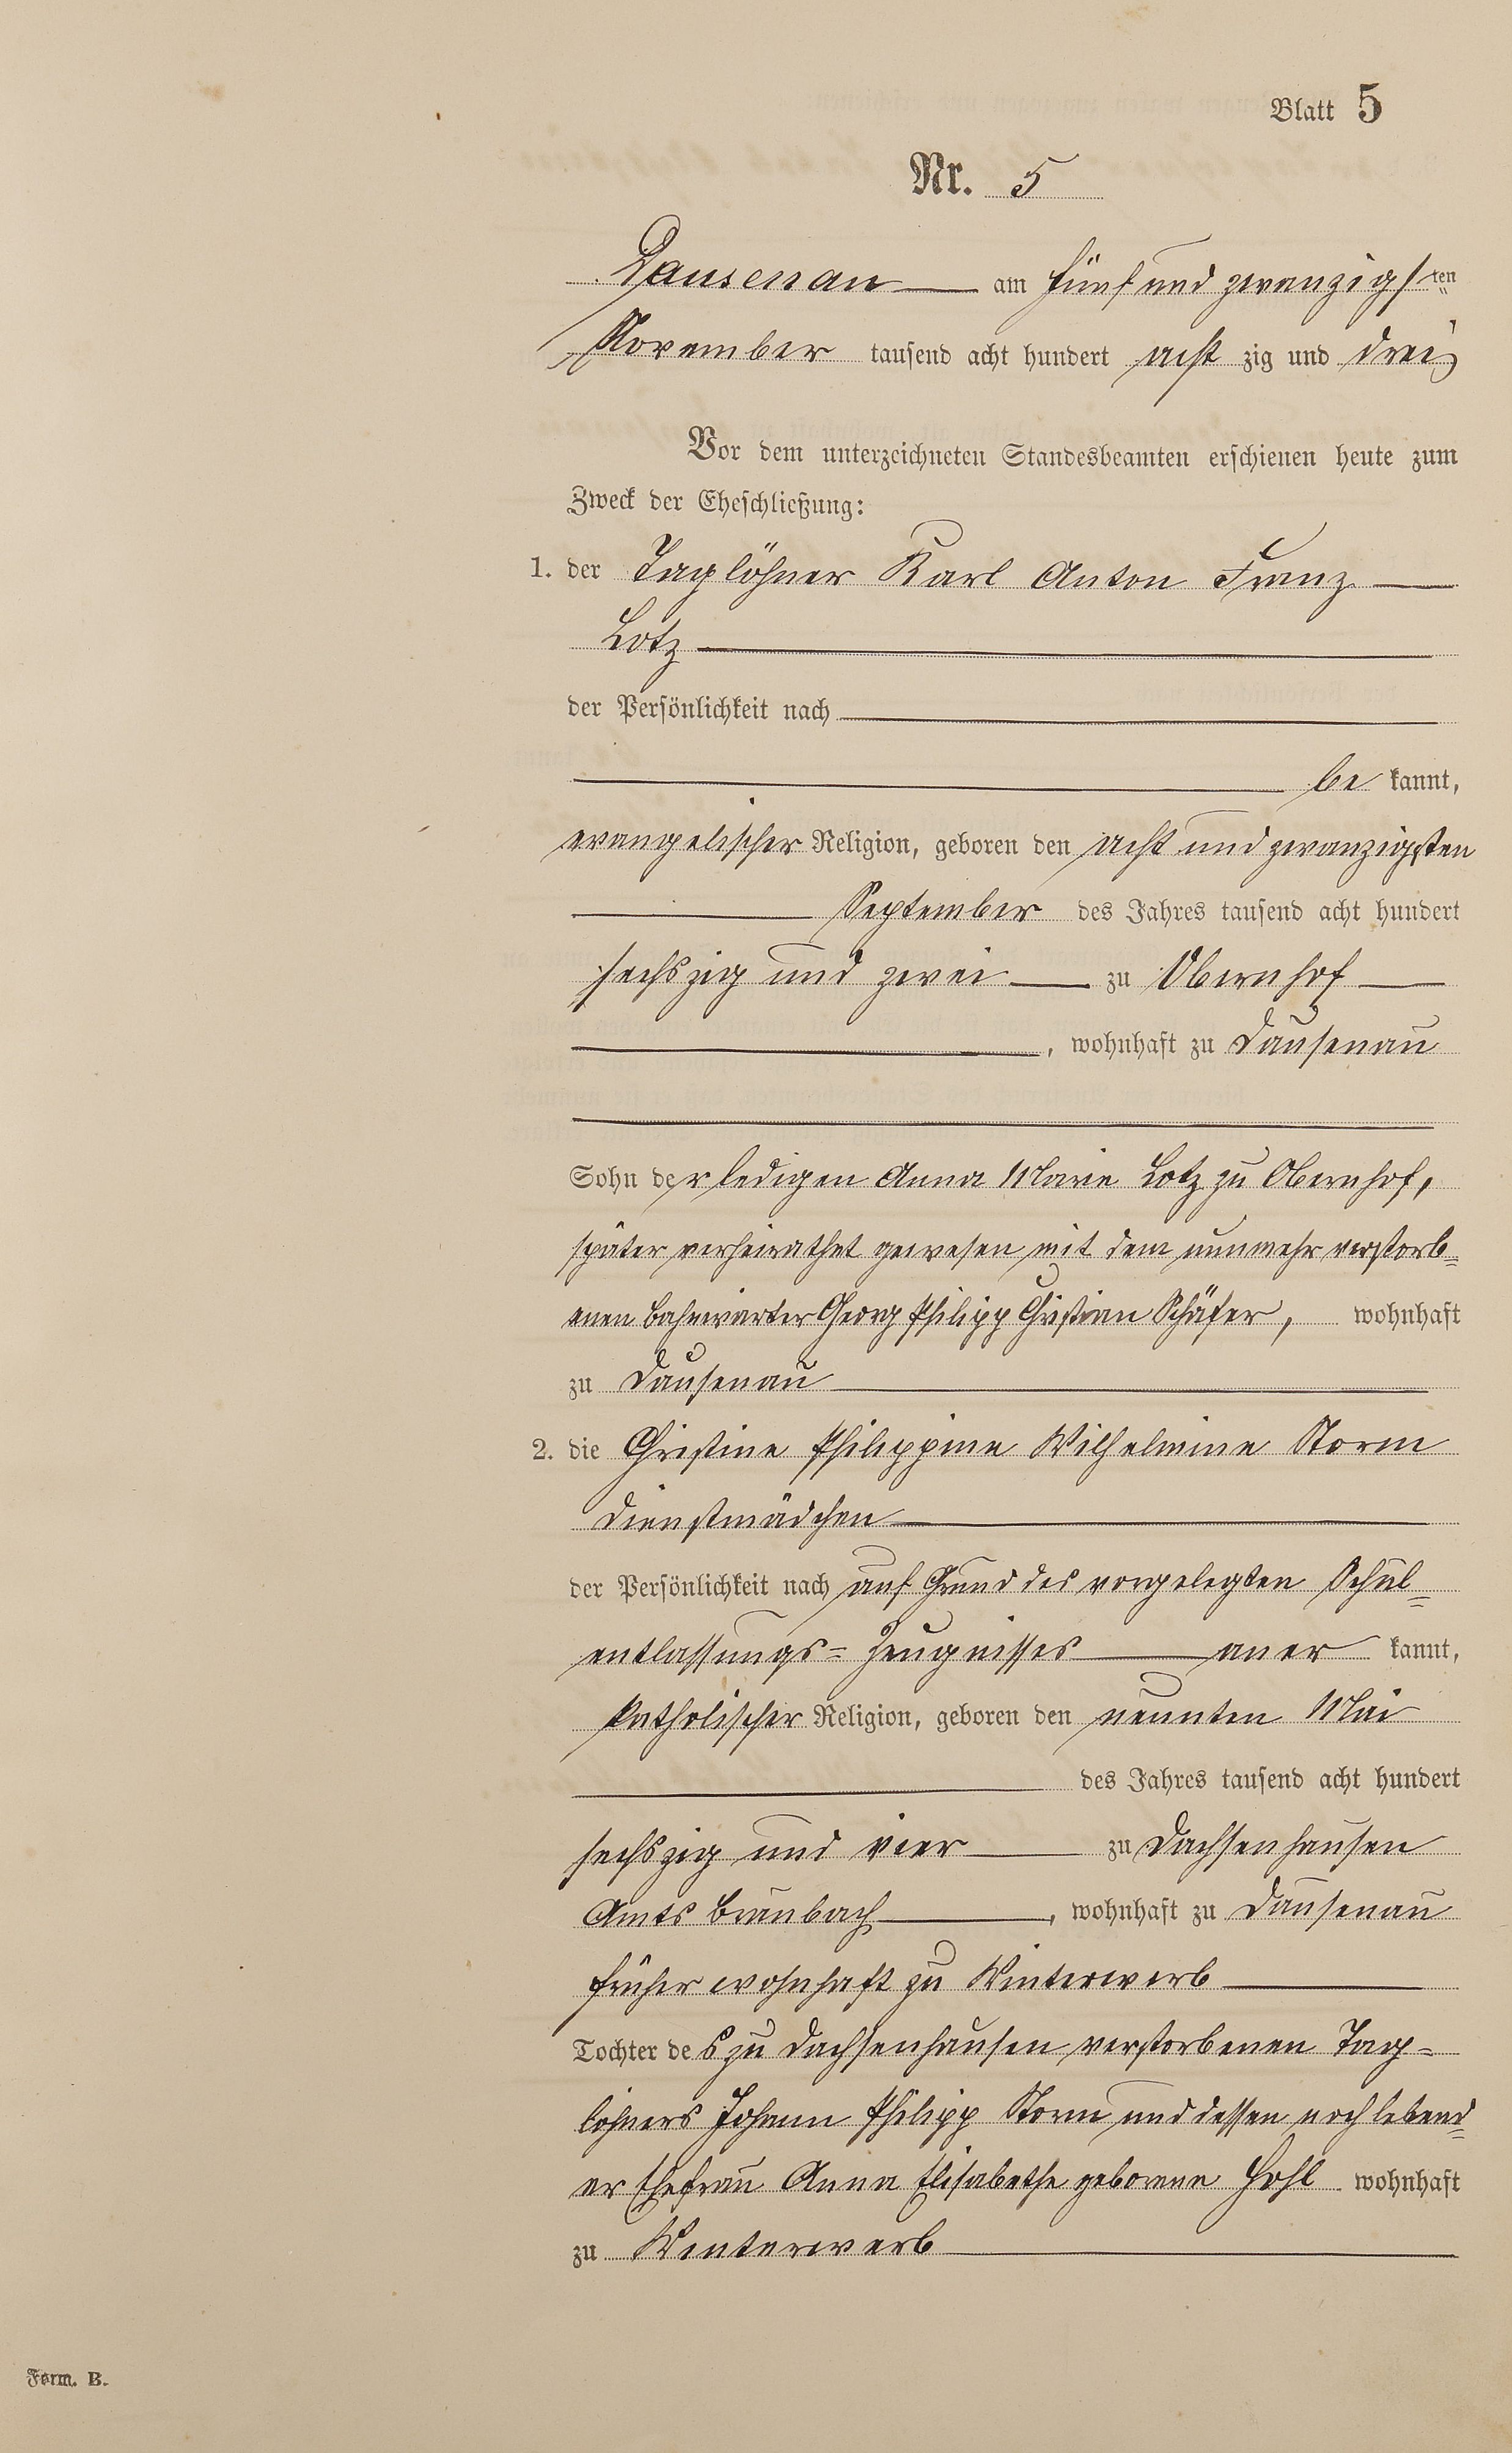 Blatt 5
Nr. 5
Dausenau am fünf und zwanzigsten
November tausend acht hundert acht zig und drei
Vor dem unterzeichneten Standesbeamten erschienen heute zum
Zweck der Eheschließung:
1. der Taglöhner Karl Anton Franz
Lotz
der Persönlichkeit nach
be kannt,
evangelischer Religion, geboren den acht und zwanzigsten
September des Jahres tausend acht hundert
sechszig und zwei zu Obernhof
, wohnhaft zu Dausenau
Sohn der ledigen Anna Marie Lotz zu Obernhof,
später verheirathet gewesen mit dem nunmehr verstorb=
enen Bahnwärter Georg Philipp Christian Schäfer, wohnhaft
zu Dausenau
2. die Christine Philippine Wilhelmine Storm
Dienstmädchen
der Persönlichkeit nach auf Grund des vorgelegten Schul=
entlassungs= Zeugnisses aner kannt,
katholischer Religion, geboren den neunten Mai
des Jahres tausend acht hundert
sechszig und vier zu Dachsenhausen
Amts Braubach, wohnhaft zu Dausenau
früher wohnhaft zu Winterwerb
Tochter des zu Dachsenhausen verstorbenen Tag=
löhners Johann Philipp Storm und dessen noch lebend=
er Ehefrau Anna Elisabethe geborene Hohl wohnhaft
zu Winterwerb
Form. B.